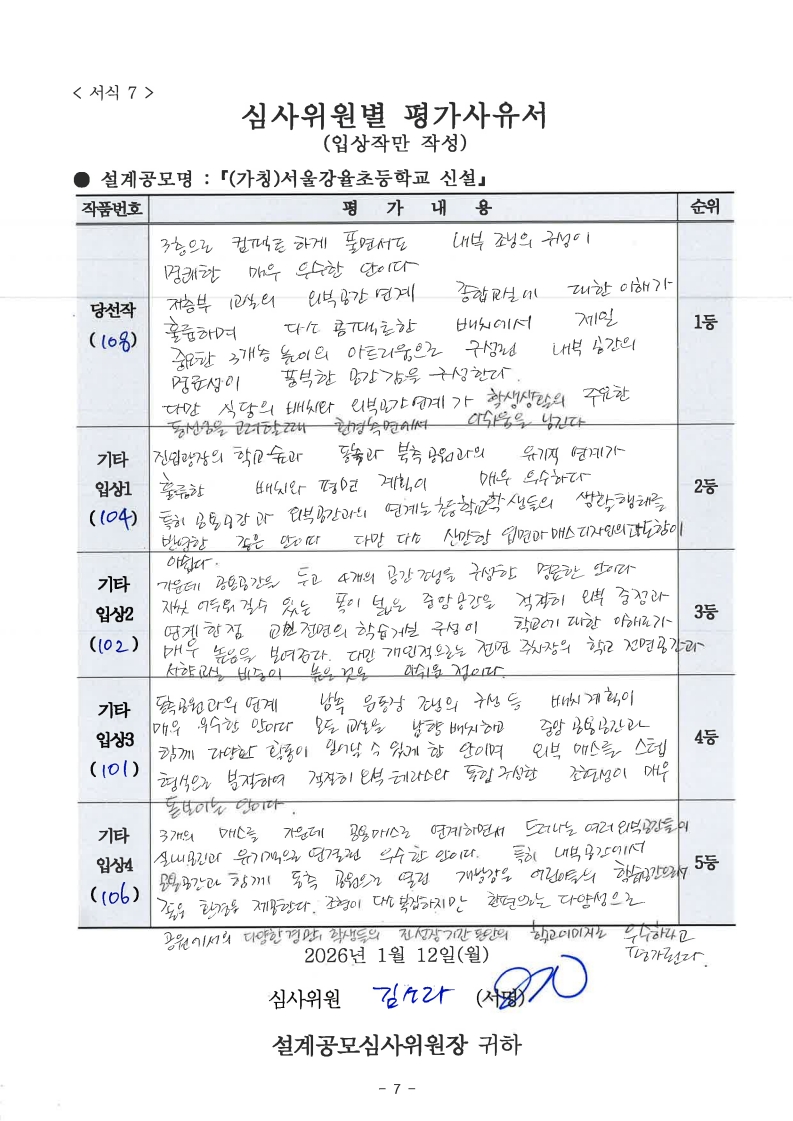 < 서식 7 >
심사위원별 평가사유서
(입상작만 작성)
● 설계공모명 : 『(가칭)서울강율초등학교 신설』
작품번호 평 가 내 용 순위
당선작
(108)
3층으로 컴팩트 하게 풀면서도 내부 조닝의 구성이
명쾌한 매우 우수한 안이다
저층부 교실의 외부공간 연계 종합교실에 대한 이해가
훌륭하며 다소 콤팩트한 배치에서 제일
중요한 3개층 높이의 아트리움으로 구성된 내부 공간의
명료성이 풍부한 공간감을 구성한다.
다만 식당의 배치와 외부공간 연계가 학생생활의 주요한
동선임을 고려할때 환경측면에서 아쉬움을 남긴다
1등
기타
입상1
(104)
진입광장의 학교숲과 동측과 북측 공원과의 유기적 연계가
훌륭한 배치와 평면 계획이 매우 우수하다
특히 공용공간과 외부공간과의 연계는 초등학교학생들의 생활행태를
반영한 좋은 안이다 다만 다소 산만한 입면과 매스디자인의
아쉽다.
2등
기타
입상2
(102)
가운데 공용공간을 두고 4개의 공간조닝을 구성한 명료한 안이다
자칫 어두워질수 있는 폭이 넓은 중앙공간을 적절히 외부 중정과
연계한점 교실전면의 학습거실 구성이 학교에 대한 이해도가
매우 높음을 보여준다. 다만 개인적으로는 전면 주차장의 학교 전면공간과
북향교실 비중이 높은것은 아쉬운 점이다.
3등
기타
입상3
(101)
동측공원과의 연계 남측 운동장 조닝의 구성 등 배치계획이
매우 우수한 안이다 모든 교실을 남향 배치하고 중앙 공용공간과
함께 다양한 활동이 일어날 수 있게 한 안이며 외부 매스를 스텝
형식으로 분절하여 적절히 외부 테라스와 통합 구성한 조형성이 매우
돋보이는 안이다.
4등
기타
입상4
(106)
3개의 매스를 가운데 공용매스로 연계하면서 드러나는 여러 외부공간들이
실내공간과 유기적으로 연결된 우수한 안이다. 특히 내부공간에서
공용공간과 함께 동측 공원으로 열린 개방감은 어린이들의 학습공간으로서
좋은 환경을 제공한다. 조형이 다소 복잡하지만 한편으로는 다양성으로
공원에서의 다양한 경관과 학생들의 학교이미지로 우수하다고
평가된다.
5등
2026년 1월 12일(월)
심사위원 김소라 (서명)
설계공모심사위원장 귀하
- 7 -